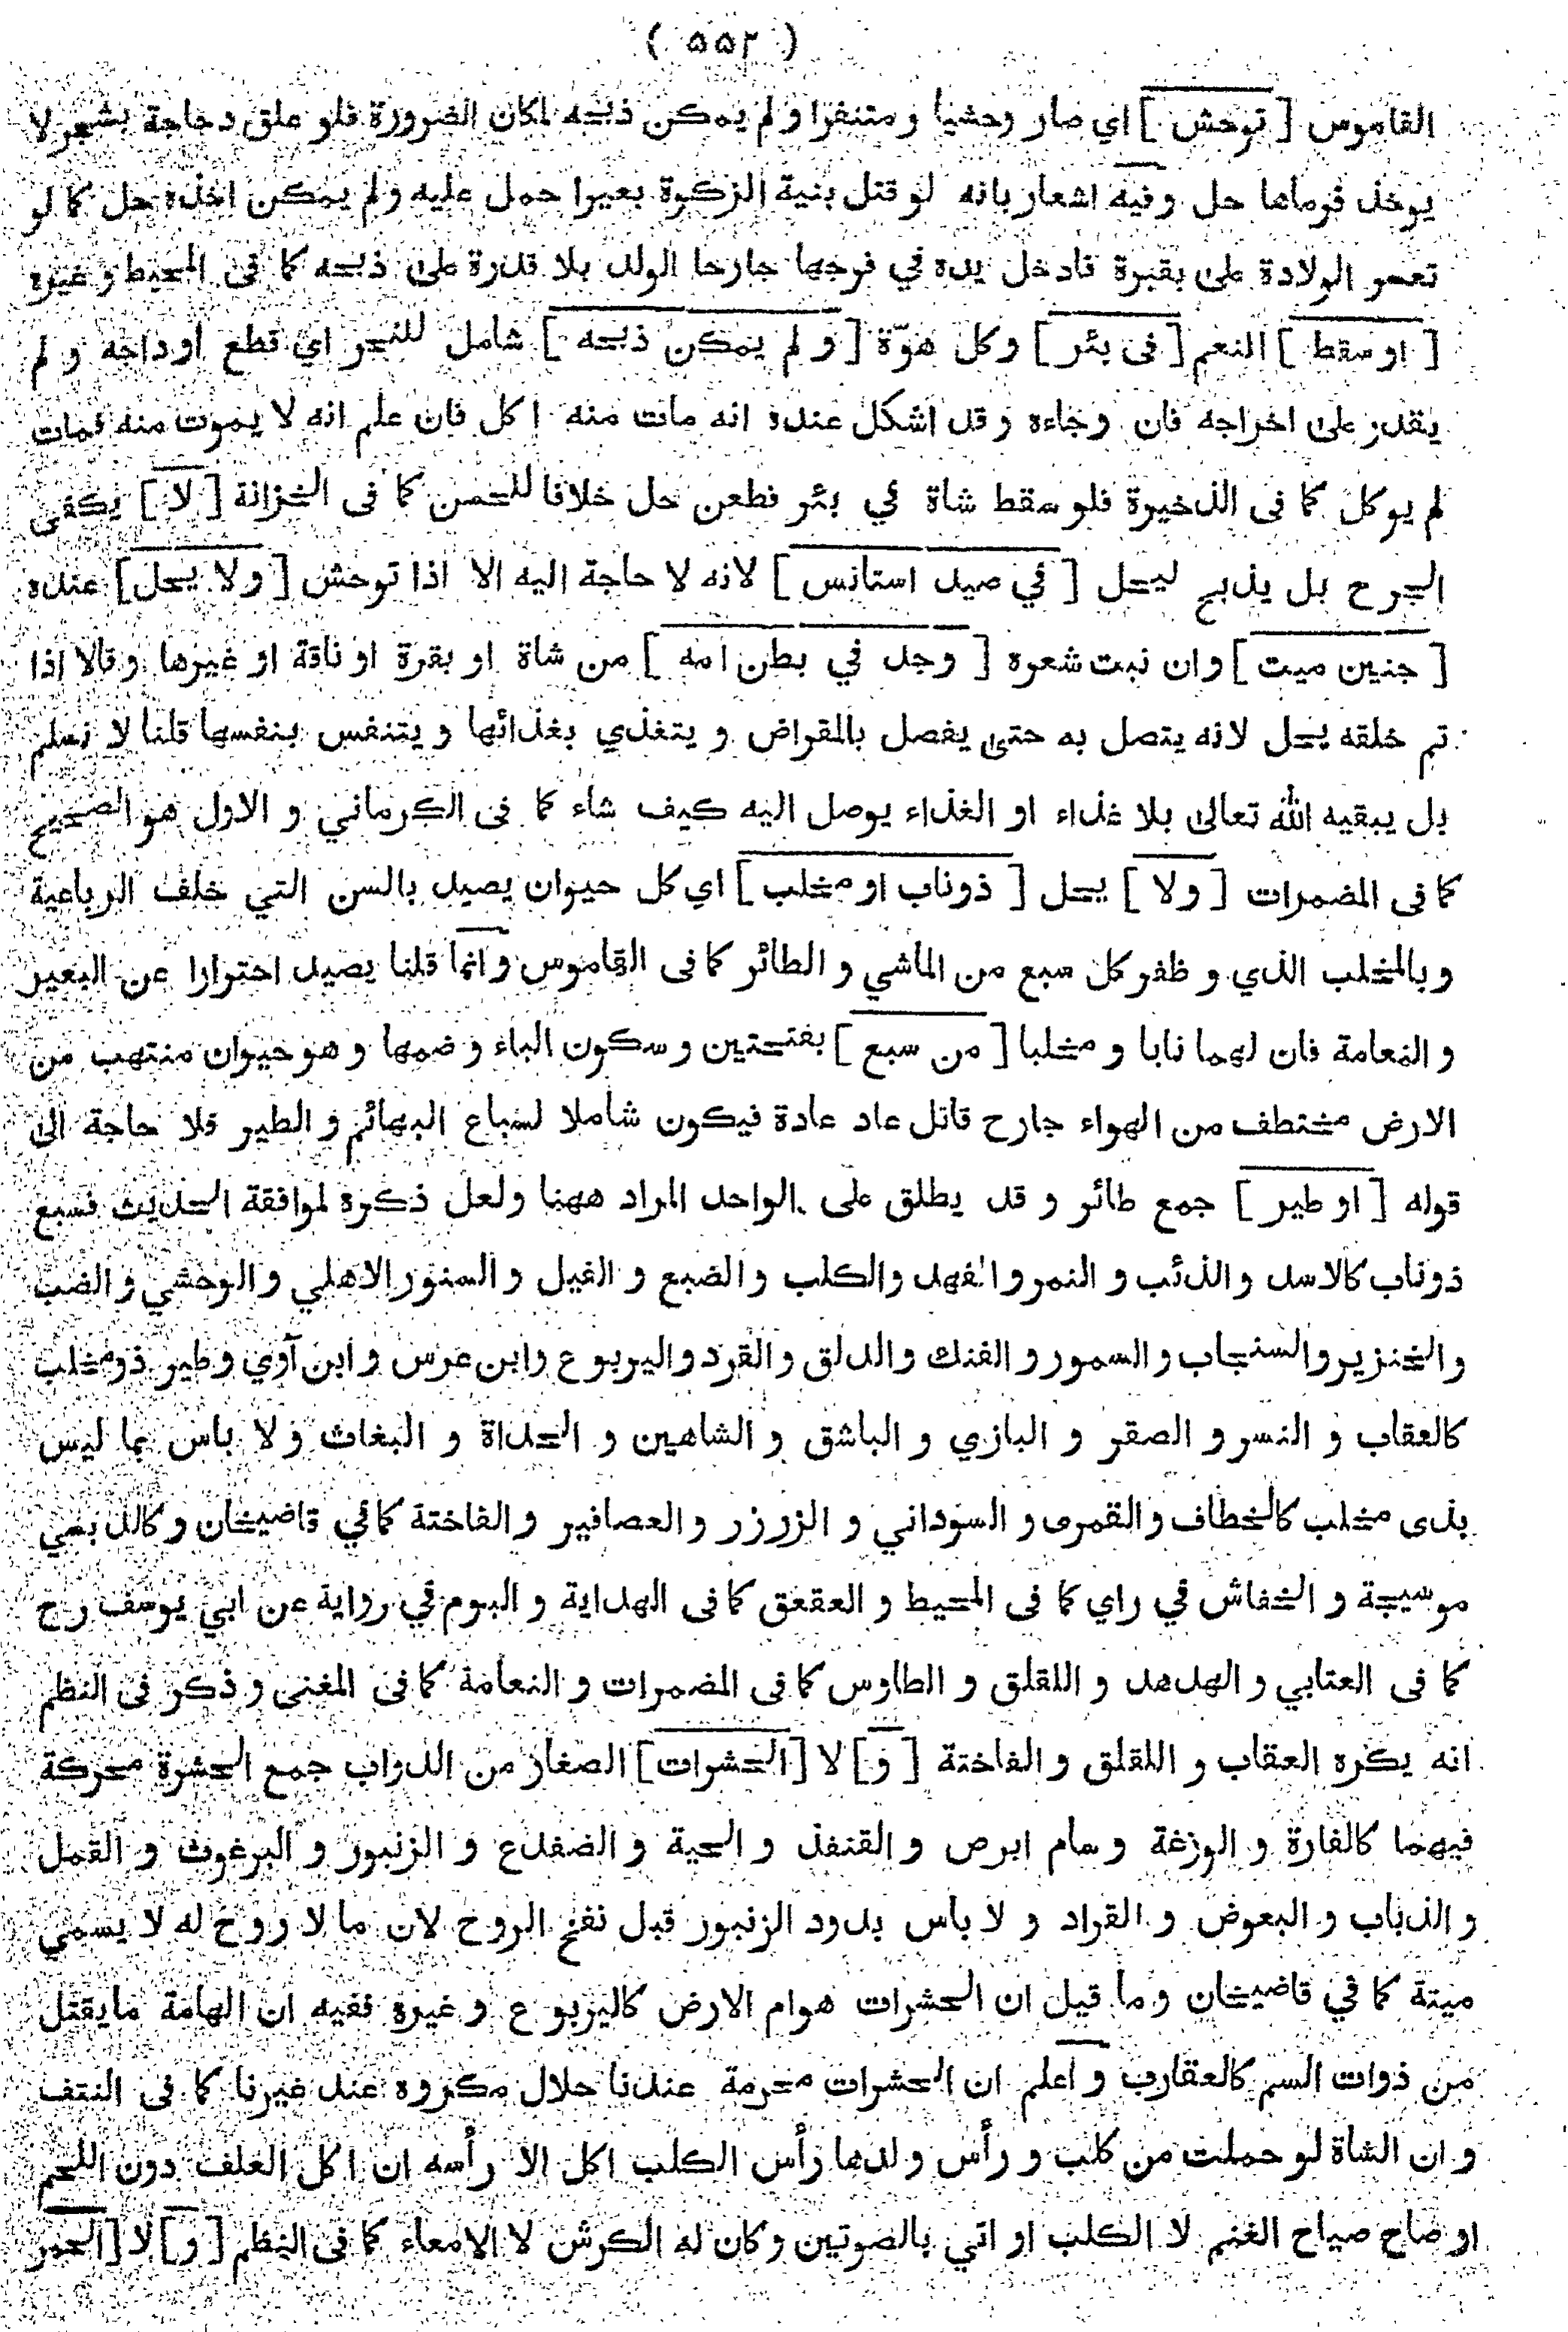 ( ٥٥٢ )
القاموس [ توحش ] اي صار وحشيا و متنفرا و لم يمكن ذبحه لمكان الضرورة فلو علق دجاجة بشجر لا
يوخذ فرماها حل وفيه اشعار بانه لو قتل بنية الزكوة بعيرا حمل عليه ولم يمكن اخذه حل كما لو
تعسر الولادة على بقرة فادخل يده في فرجها جارحا الولد بلا قدرة على ذبحه كما فى المحيط و غيره
[ او سقط ] النعم [ فى بئر ] وكل هوّة [ و لم يمكن ذبحه ] شامل للنحر اي قطع اوداجه و لم
يقدر على اخراجه فان وجاءه و قد اشكل عنده انه مات منه اكل فان علم انه لا يموت منه فمات
لم يوكل كما فى الذخيرة فلو سقط شاة في بئر فطعن حل خلافا للحسن كما فى الخزانة [ لا ] يكفى
الجرح بل يذبح ليحل [ في صيد استانس ] لانه لا حاجة اليه الا اذا توحش [ ولا يحل ] عنده
[ جنين ميت ] وان نبت شعره [ وجد في بطن امه ] من شاة او بقرة او ناقة او غيرها و قالا اذا
تم خلقه يحل لانه يتصل به حتى يفصل بالمقراض و يتغذي بغذائها و يتنفس بنفسها قلنا لا نسلم
بل يبقيه الله تعالى بلا غذاء او الغذاء يوصل اليه كيف شاء كما فى الكرماني و الاول هو الصحيح
كما فى المضمرات [ ولا ] يحل [ ذوناب او مخلب ] اي كل حيوان يصيد بالسن التي خلف الرباعية
و بالمخلب الذي و ظفر كل سبع من الماشي و الطائر كما فى القاموس وانما قلنا يصيد احترازا عن البعير
و النعامة فان لهما نابا و مخلبا [ من سبع ] بفتحتين و سكون الباء و ضمها و هو حيوان منتهب من
الارض مختطف من الهواء جارح قاتل عاد عادة فيكون شاملا لسباع البهائم و الطير فلا حاجة الى
قوله [ او طير ] جمع طائر و قد يطلق على الواحد المراد ههنا ولعل ذكره لموافقة الحديث فسبع
ذوناب كالاسد والذئب و النمر و الفهد والكلب والضبع و الفيل و السنور الاهلي و الوحشي و الضب
والخنزير والسنجاب و السمور و الفنك والدلق و القرد واليربوع وابن عرس و ابن آوي و طير ذو مخلب
كالعقاب و النسر و الصقر و البازي و الباشق و الشاهين و الحداة و البغاث و لا باس بما ليس
بذى مخلب كالخطاف والقمرى و السوداني و الزرزر و العصافير و الفاختة كما في قاضيخان و كالدبسي
موسيجة و الخفاش في راي كما فى المحيط و العقعق كما فى الهداية و البوم في رواية عن ابي يوسف رح
كما فى العتابي و الهدهد و اللقلق و الطاوس كما فى المضمرات و النعامة كما فى المغنى و ذكر فى النظم
انه يكره العقاب و اللقلق و الفاختة [ و ] لا [ الحشرات ] الصغار من الدواب جمع الحشرة محركة
فيهما كالفارة و الوزغة و سام ابرص و القنفذ و الحية و الضفدع و الزنبور و البرغوث و القمل
و الذباب و البعوض و القراد و لا باس بدود الزنبور قبل نفخ الروح لان ما لا روح له لا يسمى
ميتة كما في قاضيخان و ما قيل ان الحشرات هوام الارض كاليربوع و غيره ففيه ان الهامة ما يقتل
من ذوات السم كالعقارب و اعلم ان الحشرات محرمة عندنا حلال مكروه عند غيرنا كما فى النتف
و ان الشاة لو حملت من كلب و رأس ولدها رأس الكلب اكل الا رأسه ان اكل العلف دون اللحم
او صاح صياح الغنم لا الكلب او اتي بالصوتين و كان له الكرش لا الامعاء كما فى النظم [ و ] لا [ الحمر